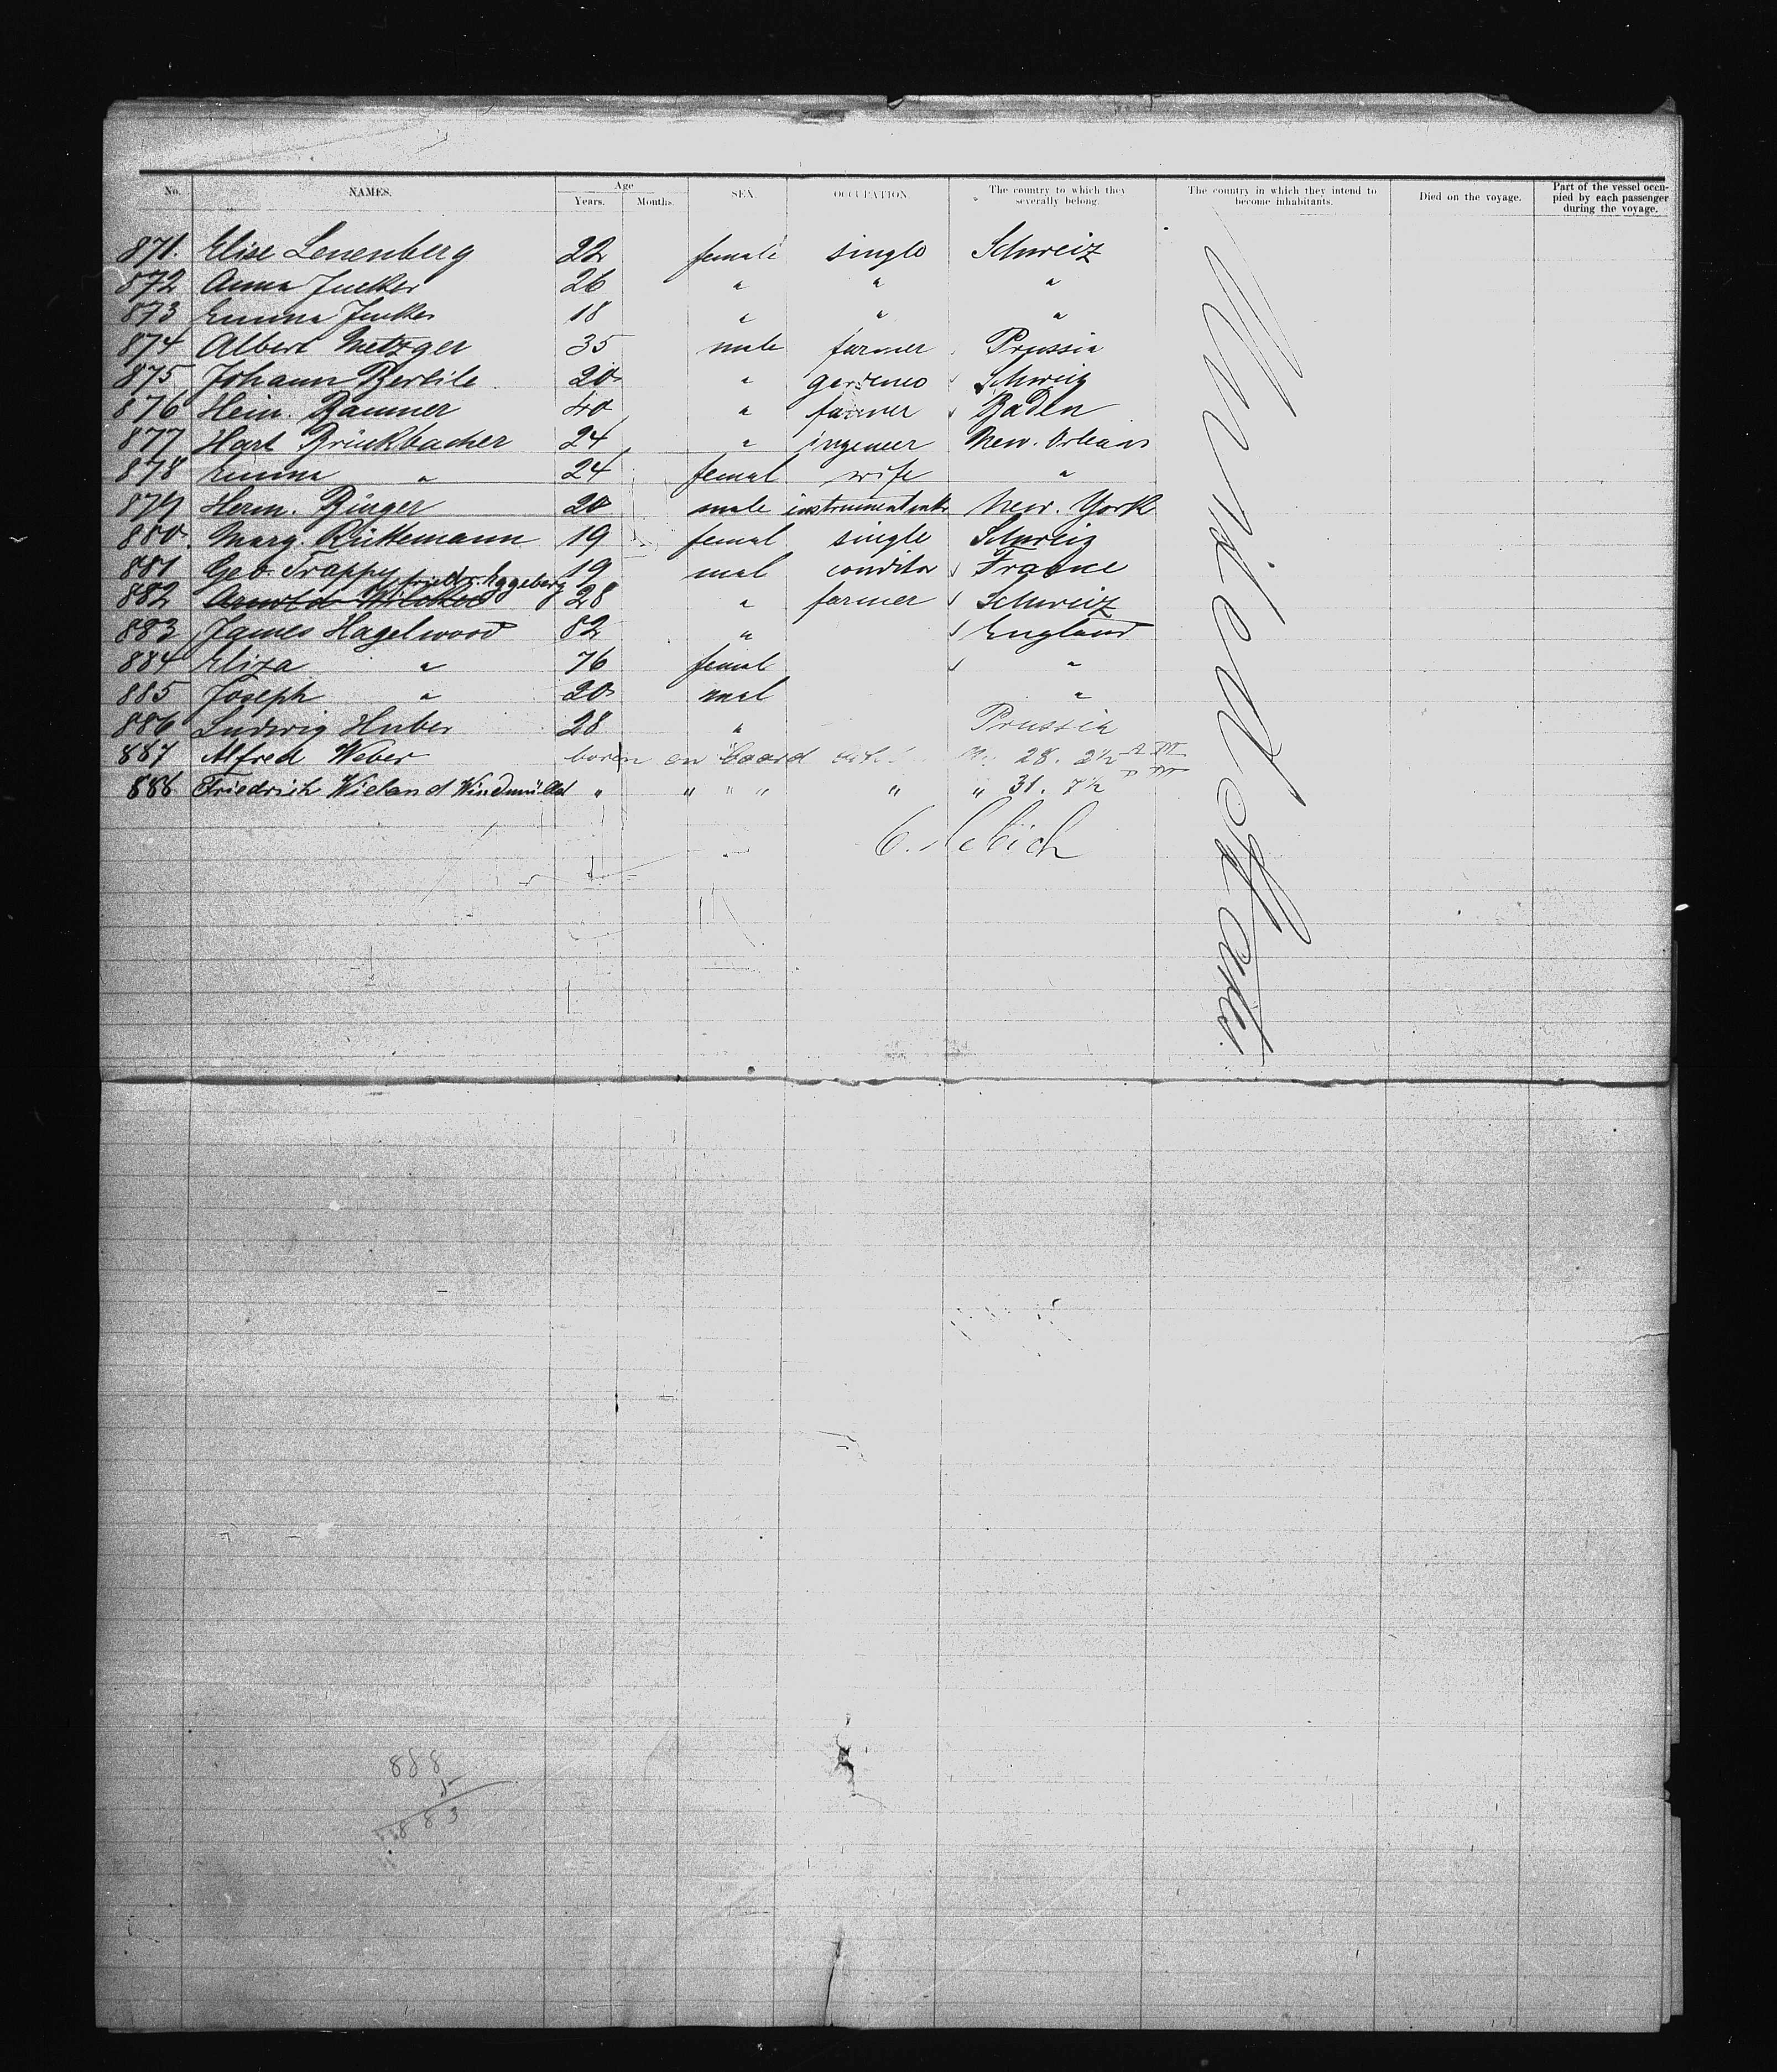 No. NAMES. Age Years. Months. SEX. OCCUPATION. The country to which they severally belong. The country in which they intend to become inhabitants. Died on the voyage. Part of the vessel occupied by each passenger during the voyage.
871. Elise Lenenberg 22 female single Schweiz
872 Anna Jucker 26 " " "
873 Emma Jucker 18 " " "
874 Albert Metzger 35 male farmer Prussia
875 Johann Berlile 20 " Schweiz
876 Hein. Banner 40 " farmer Baden
877 Hart Brinkbacher 24 " ingeneer New. Orleans
878 Emma " 24 femal wife "
879 Herm. Ringer 20 male New. York
880 Marg. Rüttemann 19 femal single Schweiz
881 Geb. Trappy 19 mal conditor France
Friedr. Eggeberg
882 28 " farmer Schweiz
883 James Hagelwood 82 " England
884 Eliza " 76 femal "
885 Joseph " 20 mal "
886 Ludwig Huber 28 " Prussia
887 Alfred Weber born on board 28. 2½
888 Friedrich Wieland Windmüller " " " " " " 31. 7½
United States.
888
5
883